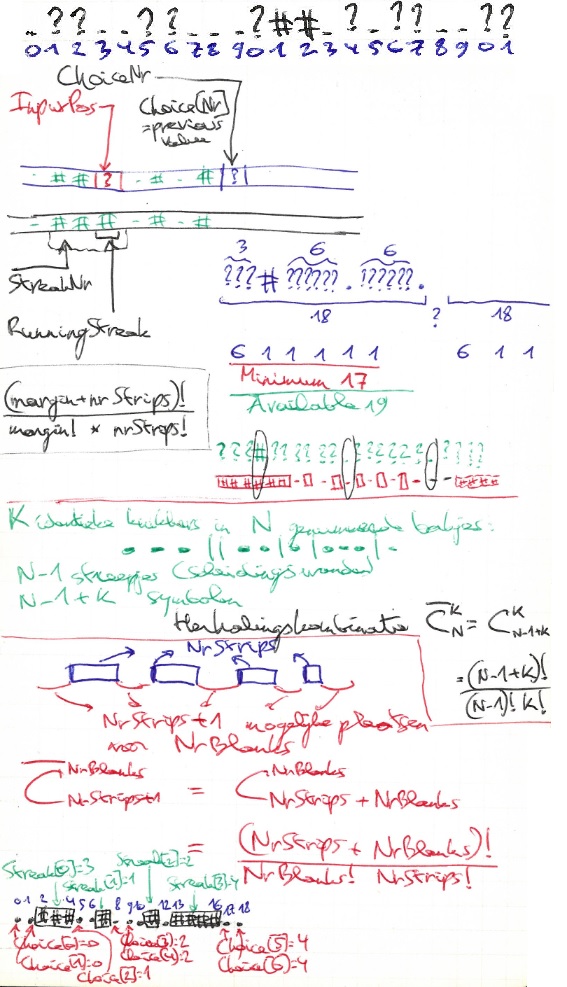 . ? ? . . ? ? . . ? # # . ? . ? ? . . ? ?
0 1 2 3 4 5 6 7 8 9 0 1 2 3 4 5 6 7 8 9 0 1
ChoiceNr
InputPos
Choice[Nr]
=previous
value
- # # ? - # - # ?
- # # # - # - #
StreakNr
RunningStreak
3 6 6
???#??????.??????.
18 ? 18
6 1 1 1 1 1 6 1 1
Minimum 17
Available 19
(margin+nrStrips)!
margin! * nrStrips!
K identieke knikkers in N genummerde bakjes:
N-1 streepjes (scheidingswanden)
N-1+K symbolen
Herhalingskombinatie C̅ K N = C K N-1+K
= (N-1+K)!
(N-1)! K!
NrStrips
NrStrips+1 mogelijke plaatsen
voor NrBlanks
C̅ NrBlanks NrStrips+1 = C NrBlanks NrStrips + NrBlanks
= (NrStrips + NrBlanks)!
NrBlanks! NrStrips!
Streak[0]=3 Streak[2]=2
Streak[1]=1 Streak[3]=4
0 1 2 4 5 6 8 9 10 12 13 16 17 18
Choice[0]=0 Choice[3]=2 Choice[5]=4
Choice[1]=0 Choice[4]=2 Choice[6]=4
Choice[2]=1